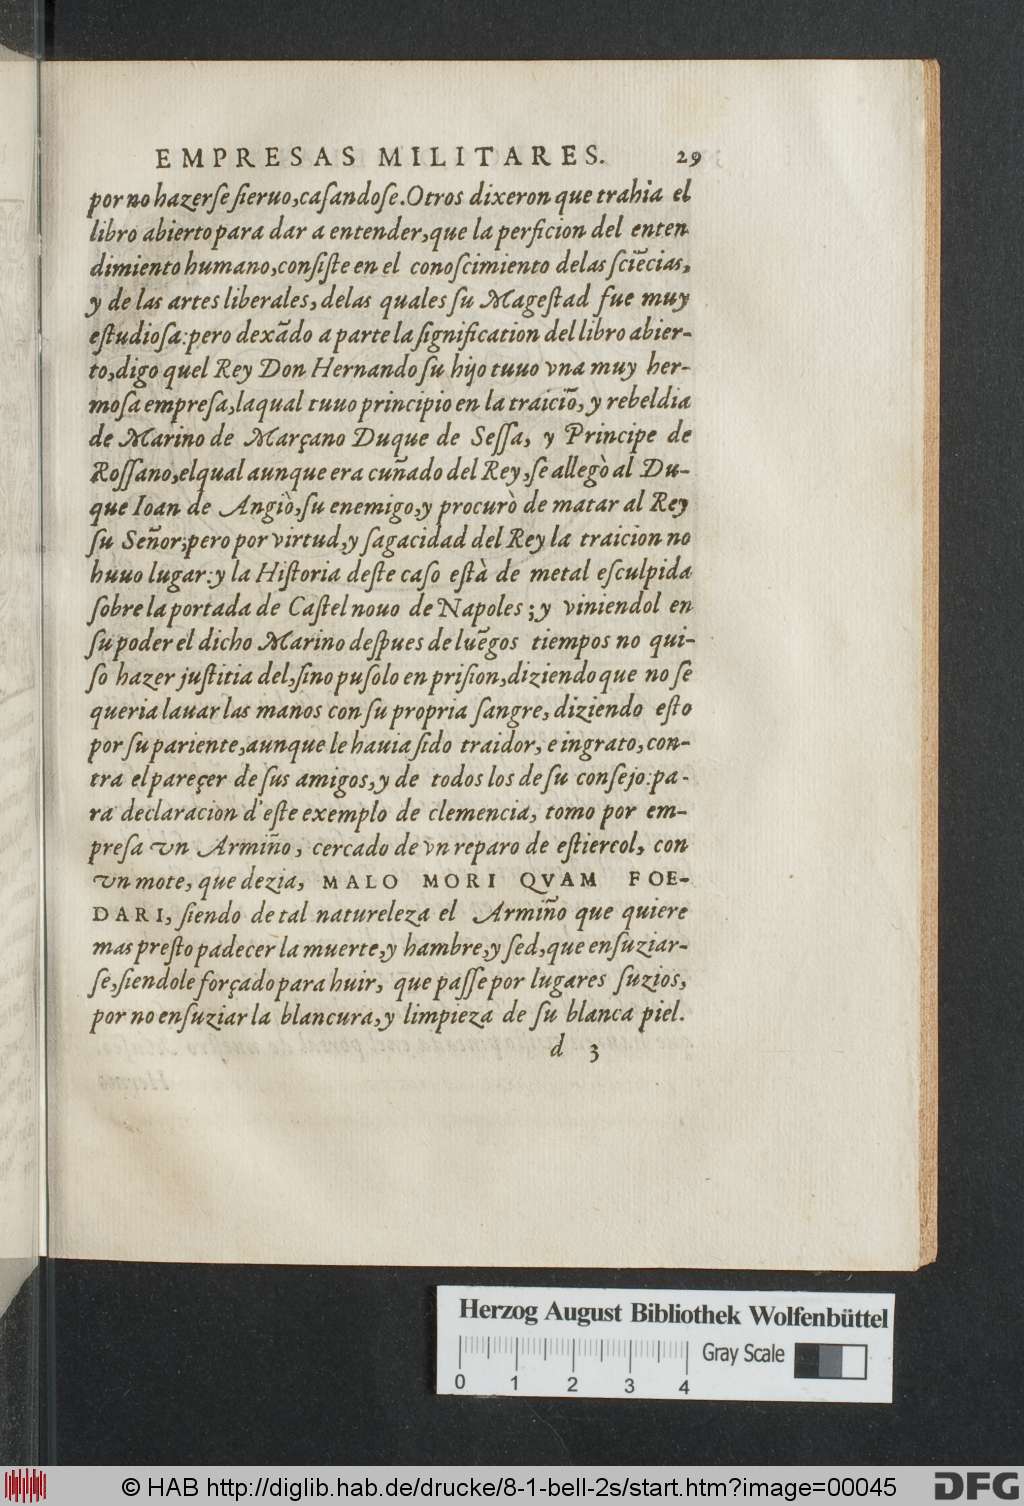 EMPRESAS MILITARES. 29
por no hazerse sieruo, casandose. Otros dixeron que trahia el
libro abierto para dar a entender, que la perficion del enten
dimiento humano, consiste en el conoscimiento delas sciẽcias,
y de las artes liberales, delas quales su Magestad fue muy
estudiosa: pero dexãdo a parte la signification del libro abier-
to, digo quel Rey Don Hernando su hijo tuuo vna muy her-
mosa empresa, laqual tuuo principio en la traiciõ, y rebeldia
de Marino de Marçano Duque de Sessa, y Principe de
Rossano, elqual aunque era cuñado del Rey, se allegò al Du-
que Ioan de Angiò, su enemigo, y procurò de matar al Rey
su Señor; pero por virtud, y sagacidad del Rey la traicion no
huuo lugar: y la Historia deste caso està de metal esculpida
sobre la portada de Castel nouo de Napoles; y viniendol en
su poder el dicho Marino despues de luẽgos tiempos no qui-
so hazer justitia del, sino pusolo en prision, diziendo que no se
queria lauar las manos con su propria sangre, diziendo esto
por su pariente, aunque le hauia sido traidor, e ingrato, con-
tra el pareçer de sus amigos, y de todos los de su consejo: pa-
ra declaracion d'este exemplo de clemencia, tomo por em-
presa vn Armiño, cercado de vn reparo de estiercol, con
vn mote, que dezia, MALO MORI QVAM FOE-
DARI, siendo de tal natureleza el Armiño que quiere
mas presto padecer la muerte, y hambre, y sed, que ensuziar-
se, siendole forçado para huir, que passe por lugares suzios,
por no ensuziar la blancura, y limpieza de su blanca piel.
d 3
Herzog August Bibliothek Wolfenbüttel
Gray Scale
0 1 2 3 4
© HAB http://diglib.hab.de/drucke/8-1-bell-2s/start.htm?image=00045
DFG